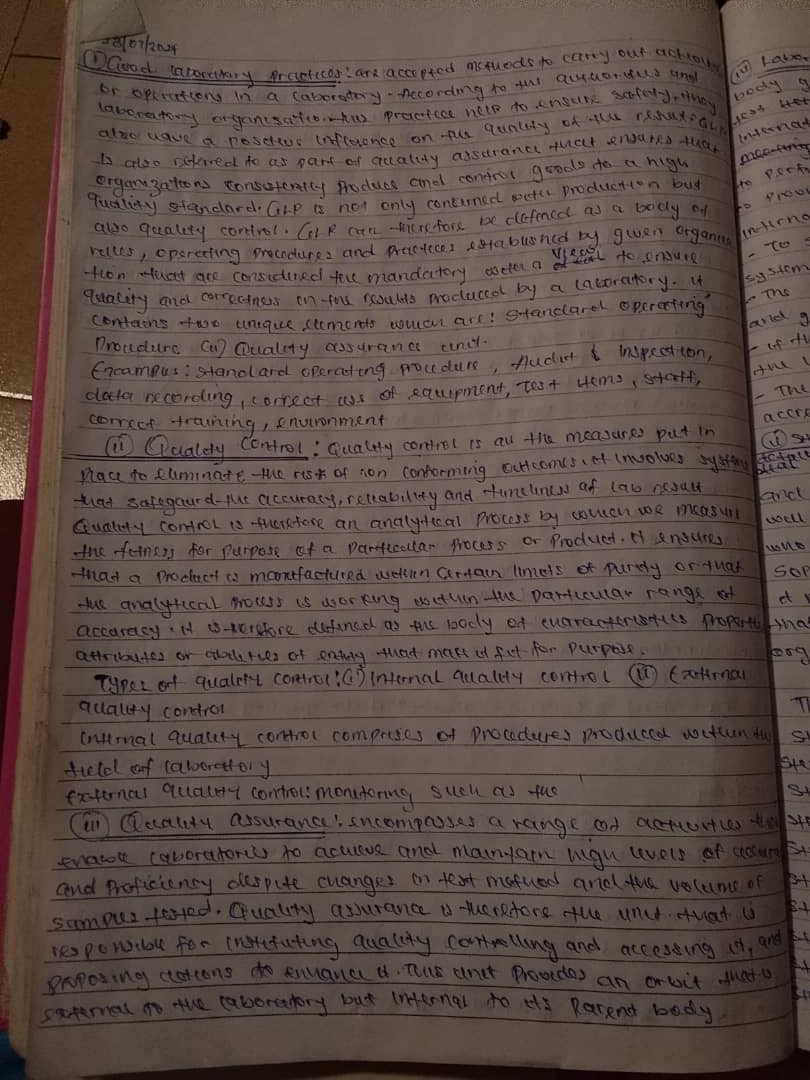 28/07/2024
(i) Good laboratory practices: are accepted methods to carry out
or operations in a laboratory. According to the authorities and
laboratory organisation this practice help to ensure safety. they
also have a positive influence on the quality of the result. GLP
is also referred to as part of quality assurance that ensures that
organizations consistently produce and control goods to a high
quality standard. GLP is not only concerned with production but
also quality control. GLP can therefore be defined as a body of
rules, operating procedures and practices established by given organiza
tion that are considered the mandatory with a view to ensure
quality and correctness in the results produced by a laboratory. it
contains two unique elements which are: standard operating
Procedure (ii) Quality assurance unit.
standard operating procedure, Audit & inspection,
data recording, correct use of equipment, test items, staff,
correct training, environment
(ii) Quality control: Quality control is all the measures put in
place to eliminate the risk of non conforming outcomes. it involves systems
that safegaurd the accuracy, reliability and timeliness of lab result
Quality control is therefore an analytical process by which we measure
the fitness for purpose of a particular process or product. it ensures
that a product is manufactured within certain limits of purity or that
the analytical process is working within the particular range of
accuracy. it is therefore defined as the body of characteristics
attributes or abilities of entity that make it fit for purpose.
Types of quality control: (i) Internal quality control (ii) External
quality control
Internal quality control comprises of procedures produced within the
field of laboratory
External quality control: monitoring such as the
(iii) Quality assurance: encompasses a range of activities
enable laboratories to achieve and maintain high levels of
and proficiency despite changes in test method and the volume of
samples tested. Quality assurance is therefore the unit that is
responsible for instituting quality controlling and accessing it, and
proposing actions to enhance it. This unit provides an orbit that is
external to the laboratory but internal to its parent body.
(iv) Labo
body g
test
Internat
meeting
to perfo
to prov
interna
- To s
system
- The
and g
- if th
the l
- The
accre
and
well
who
SOP
that
org
Th